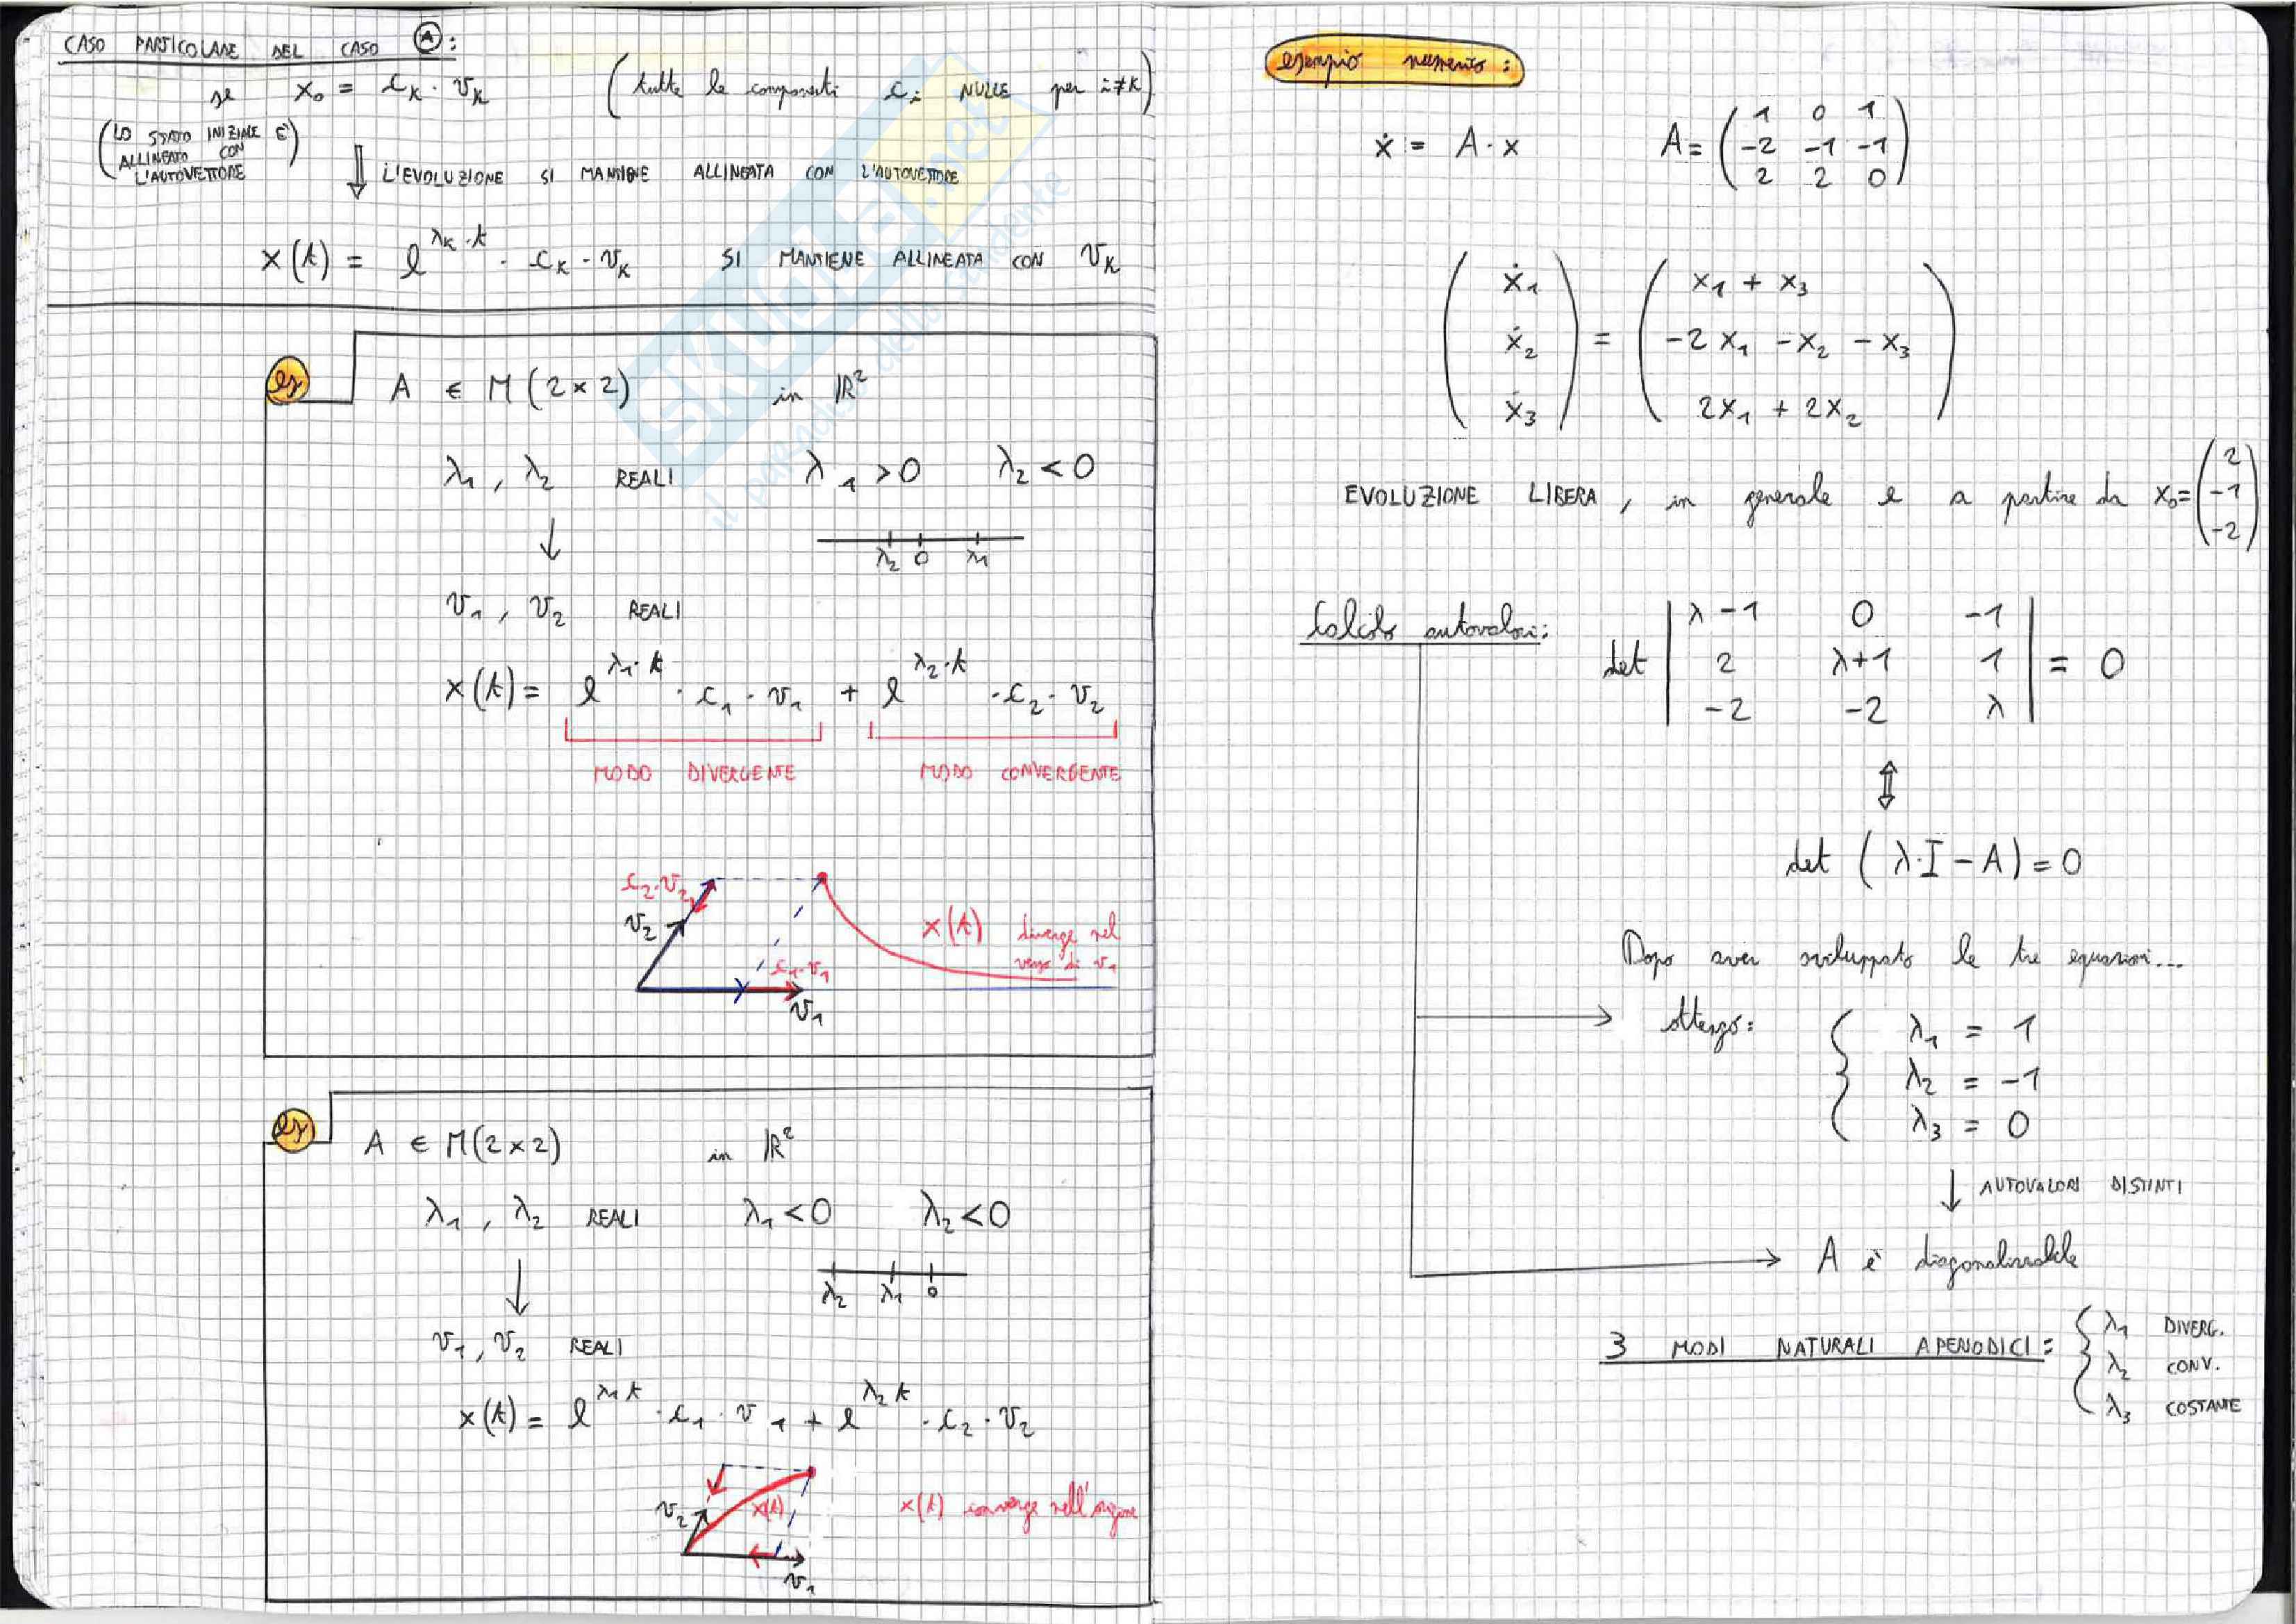 CASO PARTICOLARE DEL CASO Ⓐ:
se x₀ = c_K · v_K (tutte le componenti c_i NULLE per i≠K)
(LO STATO INIZIALE È
ALLINEATO CON
L'AUTOVETTORE)
⇓ L'EVOLUZIONE SI MANTIENE ALLINEATA CON L'AUTOVETTORE
x(t) = e^{λ_K·t} · c_K · v_K SI MANTIENE ALLINEATA CON v_K
es
A ∈ M(2×2) in ℝ²
λ₁, λ₂ REALI λ₁>0 λ₂<0
↓
λ₂ 0 λ₁
v₁, v₂ REALI
x(t) = e^{λ₁·t} · c₁ · v₁ + e^{λ₂·t} · c₂ · v₂
MODO DIVERGENTE MODO CONVERGENTE
c₂·v₂
v₂
x(t) diverge nel
verso di v₁
c₁·v₁
v₁
es
A ∈ M(2×2) in ℝ²
λ₁, λ₂ REALI λ₁<0 λ₂<0
↓
λ₂ λ₁ 0
v₁, v₂ REALI
x(t) = e^{λ₁t} · c₁ · v₁ + e^{λ₂t} · c₂ · v₂
v₂ x(t)
x(t) converge nell'origine
v₁
esempio numerico:
ẋ = A·x A = (1 0 1
-2 -1 -1
2 2 0)
(ẋ₁ = (x₁ + x₃
ẋ₂ -2x₁ -x₂ -x₃
ẋ₃) 2x₁ + 2x₂)
EVOLUZIONE LIBERA, in generale e a partire da x₀=(2
-1
-2)
Calcolo autovalori:
det |λ-1 0 -1
2 λ+1 1
-2 -2 λ| = 0
⇕
det (λ·I-A)=0
Dopo aver sviluppato le tre equazioni...
→ ottengo: { λ₁ = 1
λ₂ = -1
λ₃ = 0
↓ AUTOVALORI DISTINTI
→ A è diagonalizzabile
3 MODI NATURALI APERIODICI: { λ₁ DIVERG.
λ₂ CONV.
λ₃ COSTANTE
SKUOLA.net